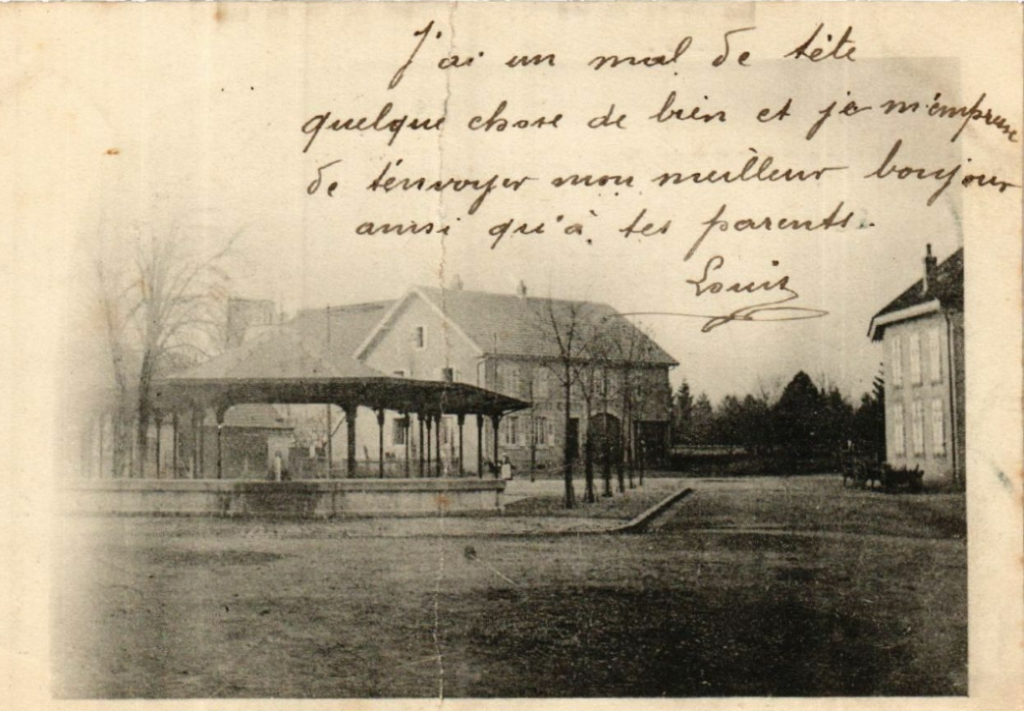 J'ai un mal de tête
quelque chose de bien et je m'empresse
de t'envoyer mon meilleur bonjour
ainsi qu'à tes parents.
Louis